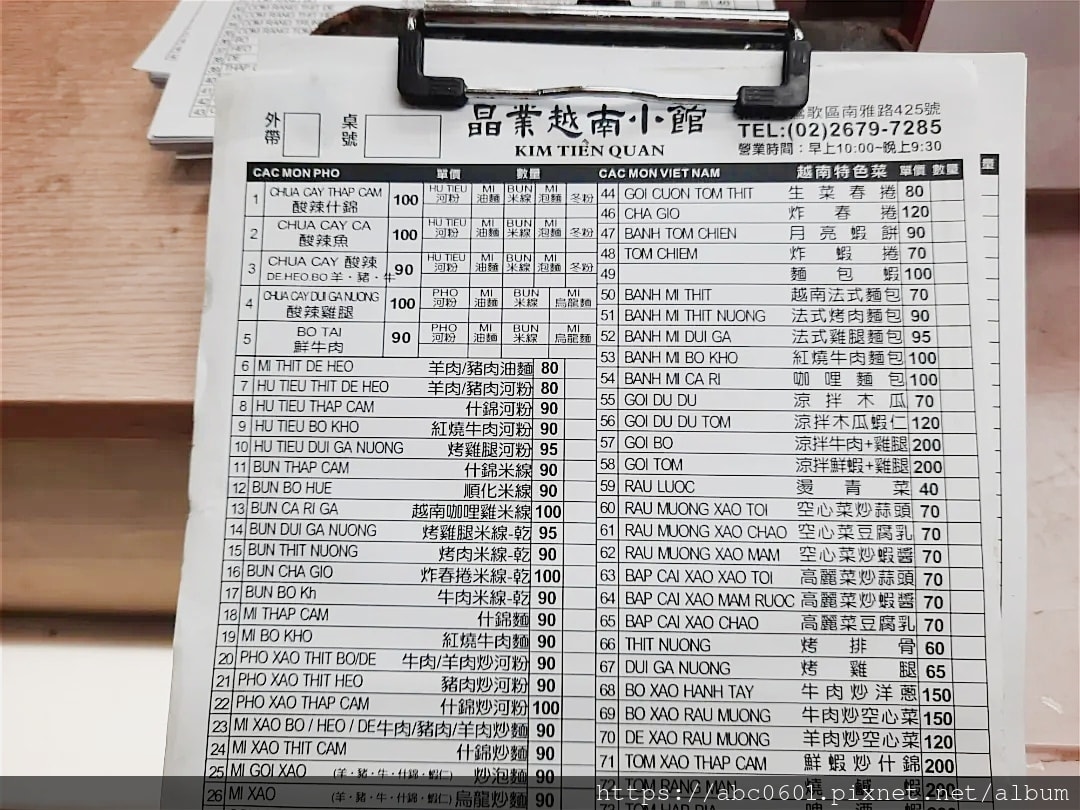 外帶 桌號
晶業越南小館
KIM TIÊN QUAN
鶯歌區南雅路425號
TEL:(02)2679-7285
營業時間：早上10:00~晚上9:30
CAC MON PHO 單價 數量
1 CHUA CAY THAP CAM 酸辣什錦 100 HU TIEU 河粉 MI 油麵 BUN 米線 MI 泡麵 冬粉
2 CHUA CAY CA 酸辣魚 100 HU TIEU 河粉 MI 油麵 BUN 米線 MI 泡麵 冬粉
3 CHUA CAY 酸辣 DE.HEO.BO 羊‧豬‧牛 90 HU TIEU 河粉 MI 油麵 BUN 米線 MI 泡麵 冬粉
4 CHUA CAY DUI GA NUONG 酸辣雞腿 100 PHO 河粉 MI 油麵 BUN 米線 MI 烏龍麵
5 BO TAI 鮮牛肉 90 PHO 河粉 MI 油麵 BUN 米線 MI 烏龍麵
6 MI THIT DE HEO 羊肉/豬肉油麵 80
7 HU TIEU THIT DE HEO 羊肉/豬肉河粉 80
8 HU TIEU THAP CAM 什錦河粉 90
9 HU TIEU BO KHO 紅燒牛肉河粉 90
10 HU TIEU DUI GA NUONG 烤雞腿河粉 95
11 BUN THAP CAM 什錦米線 90
12 BUN BO HUE 順化米線 90
13 BUN CA RI GA 越南咖哩雞米線 100
14 BUN DUI GA NUONG 烤雞腿米線-乾 95
15 BUN THIT NUONG 烤肉米線-乾 90
16 BUN CHA GIO 炸春捲米線-乾 100
17 BUN BO Kh 牛肉米線-乾 90
18 MI THAP CAM 什錦麵 90
19 MI BO KHO 紅燒牛肉麵 90
20 PHO XAO THIT BO/DE 牛肉/羊肉炒河粉 90
21 PHO XAO THIT HEO 豬肉炒河粉 90
22 PHO XAO THAP CAM 什錦炒河粉 100
23 MI XAO BO / HEO / DE 牛肉/豬肉/羊肉炒麵 90
24 MI XAO THIT CAM 什錦炒麵 90
25 MI GOI XAO (羊‧豬‧牛‧什錦‧蝦仁) 炒泡麵 90
26 MI XAO (羊‧豬‧牛‧什錦‧蝦仁) 烏龍炒麵 90
CAC MON VIET NAM 越南特色菜 單價 數量
44 GOI CUON TOM THIT 生菜春捲 80
46 CHA GIO 炸春捲 120
47 BANH TOM CHIEN 月亮蝦餅 90
48 TOM CHIEM 炸蝦捲 70
49 麵包蝦 100
50 BANH MI THIT 越南法式麵包 70
51 BANH MI THIT NUONG 法式烤肉麵包 90
52 BANH MI DUI GA 法式雞腿麵包 95
53 BANH MI BO KHO 紅燒牛肉麵包 100
54 BANH MI CA RI 咖哩麵包 100
55 GOI DU DU 涼拌木瓜 70
56 GOI DU DU TOM 涼拌木瓜蝦仁 120
57 GOI BO 涼拌牛肉+雞腿 200
58 GOI TOM 涼拌鮮蝦+雞腿 200
59 RAU LUOC 燙青菜 40
60 RAU MUONG XAO TOI 空心菜炒蒜頭 70
61 RAU MUONG XAO CHAO 空心菜豆腐乳 70
62 RAU MUONG XAO MAM 空心菜炒蝦醬 70
63 BAP CAI XAO XAO TOI 高麗菜炒蒜頭 70
64 BAP CAI XAO MAM RUOC 高麗菜炒蝦醬 70
65 BAP CAI XAO CHAO 高麗菜豆腐乳 70
66 THIT NUONG 烤排骨 60
67 DUI GA NUONG 烤雞腿 65
68 BO XAO HANH TAY 牛肉炒洋蔥 150
69 BO XAO RAU MUONG 牛肉炒空心菜 150
70 DE XAO RAU MUONG 羊肉炒空心菜 120
71 TOM XAO THAP CAM 鮮蝦炒什錦 200
72 TOM RANG MAN
https://abc0601.pixnet.net/album